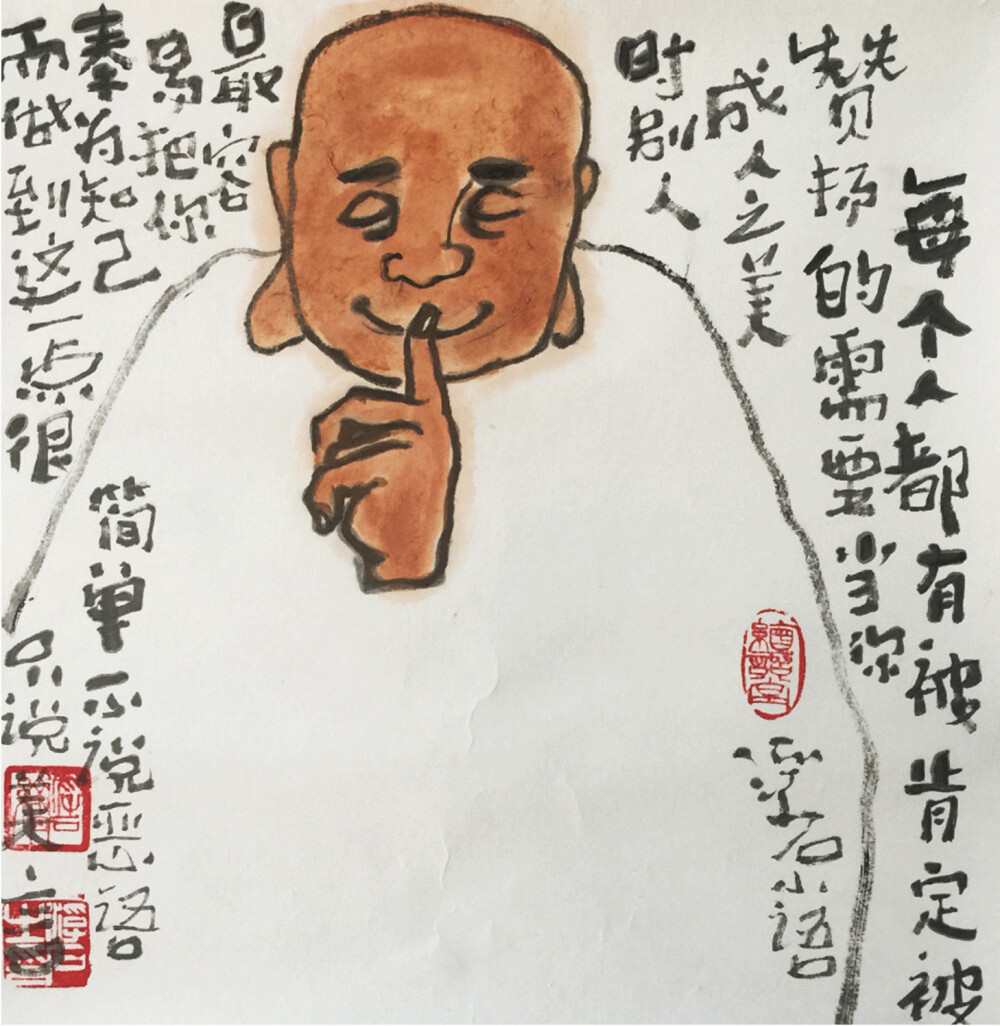 每个人都有被肯定被
赞扬的需要当你
成人之美
时别人
最容
易把你
奉为知己
而做到这一点很
简单不说恶语
只说美言
浮石小语